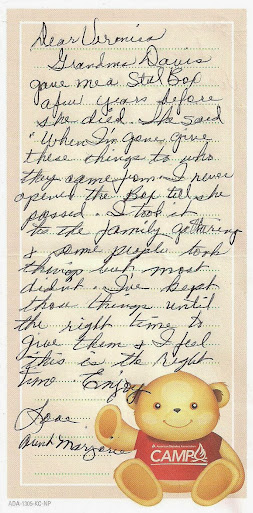 Dear Veronica
Grandma Davis
gave me a Stel Box
a few years before
she died. She said
"When I'm gone give
these things to who
they came from. I never
opened the Box till she
passed. I took it
to the family gathering
& some people took
things but most
didn't. I've kept
those things until
the right time to
give them & I feel
this is the right
time Enjoy
Love
Aunt Marjorie
CAMP
ADA-1305-KC-NP